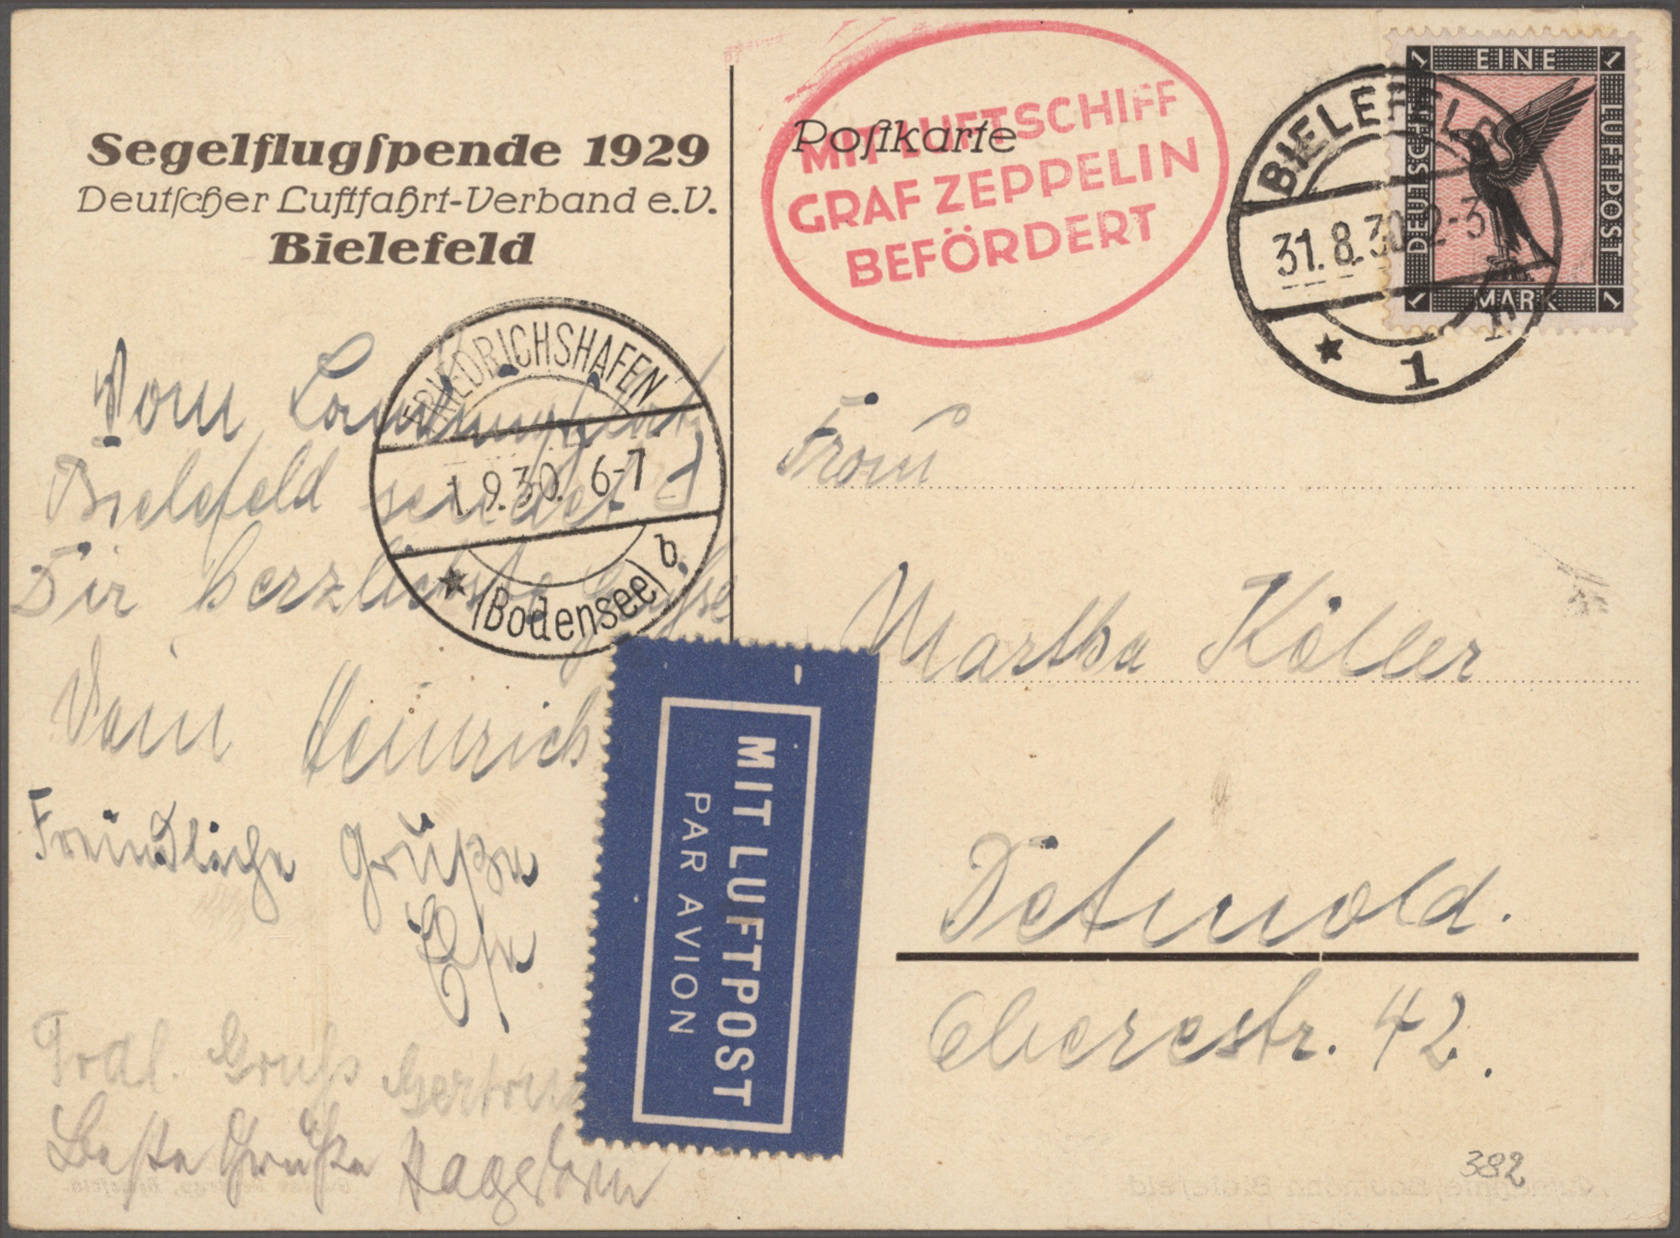 Segelflugspende 1929
Deutscher Luftfahrt-Verband e.V.
Bielefeld
Postkarte
MIT LUFTSCHIFF
GRAF ZEPPELIN
BEFÖRDERT
BIELEFELD
31.8.30. 2-3
1
1 EINE 1
DEUTSCHE
LUFTPOST
1 MARK 1
FRIEDRICHSHAFEN
1.9.30. 6-7
(Bodensee) b.
Vom Landungsplatz
Bielefeld sendet
Dir herzlichste Grüße
Dein Heinrich
Freundliche Grüße
Frdl. Gruß
Beste Grüße
MIT LUFTPOST
PAR AVION
Frau
Martha Köller
Detmold.
42.
382